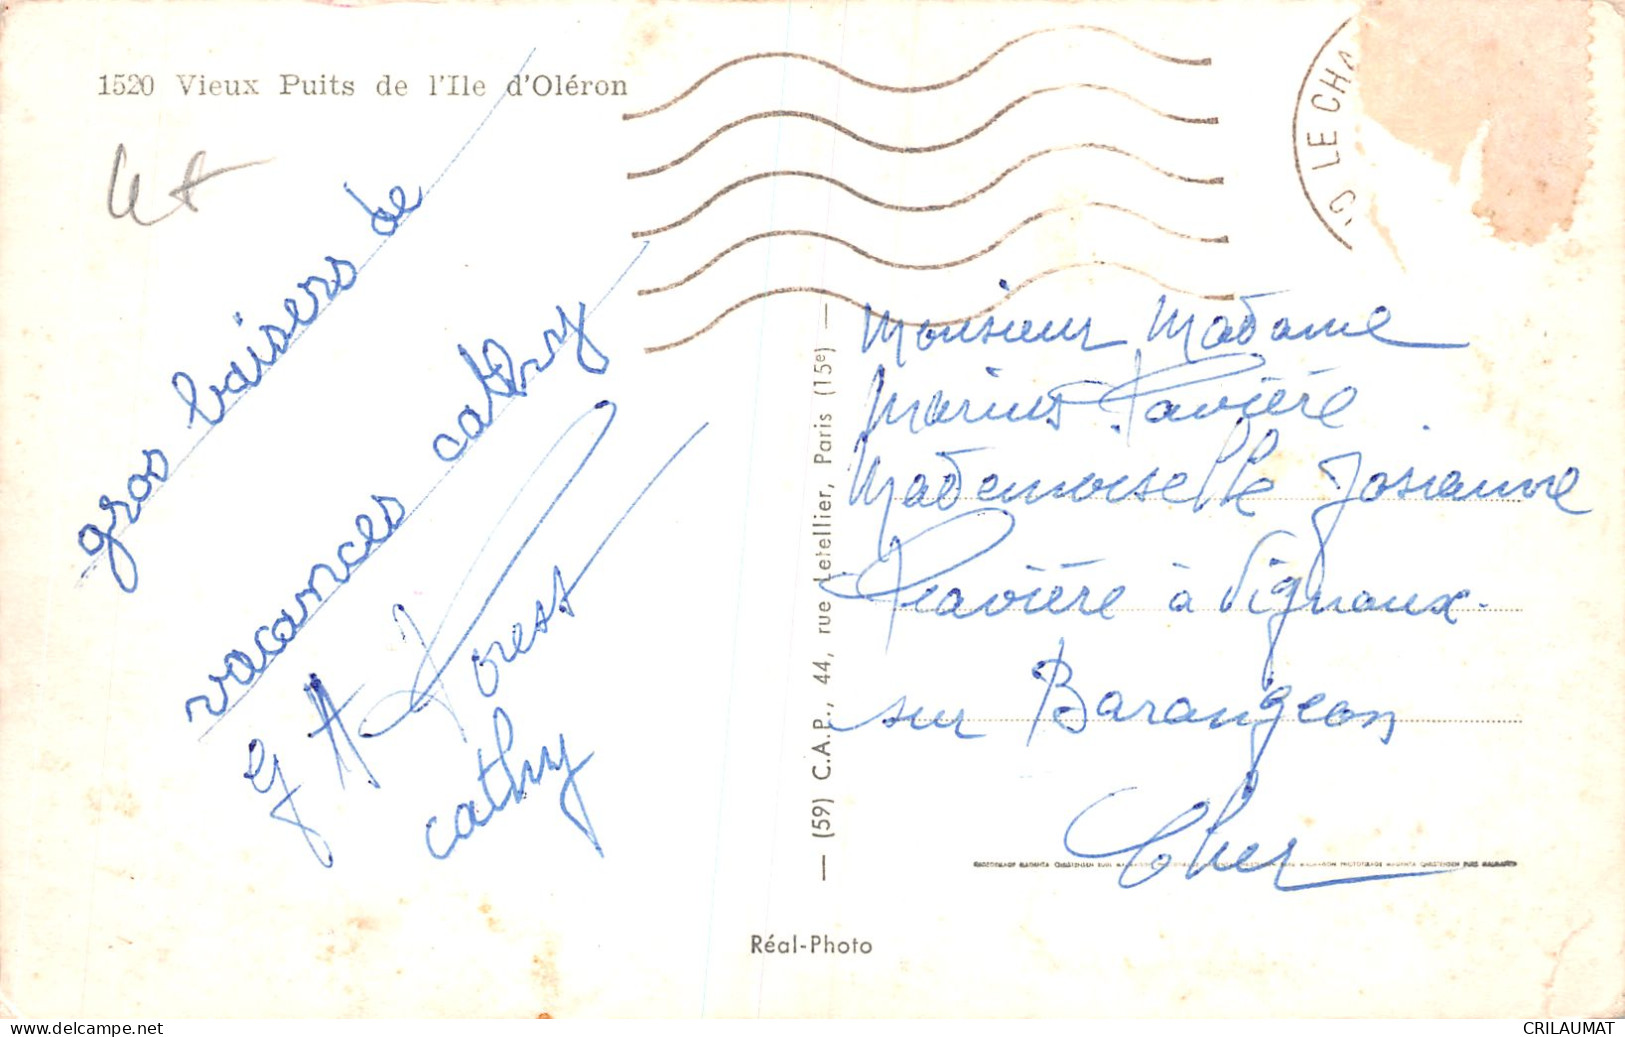 1520 Vieux Puits de l'Ile d'Oléron
LE CHA
gros baisers de
vacances cathy
Forest
cathy
Monsieur Madame
Marius Ravière
Mademoiselle Josianne
Ravière à Vignoux-
sur Barangeon
Cher
(59) C.A.P., 44, rue Letellier, Paris (15e)
Réal-Photo
www.delcampe.net
CRILAUMAT